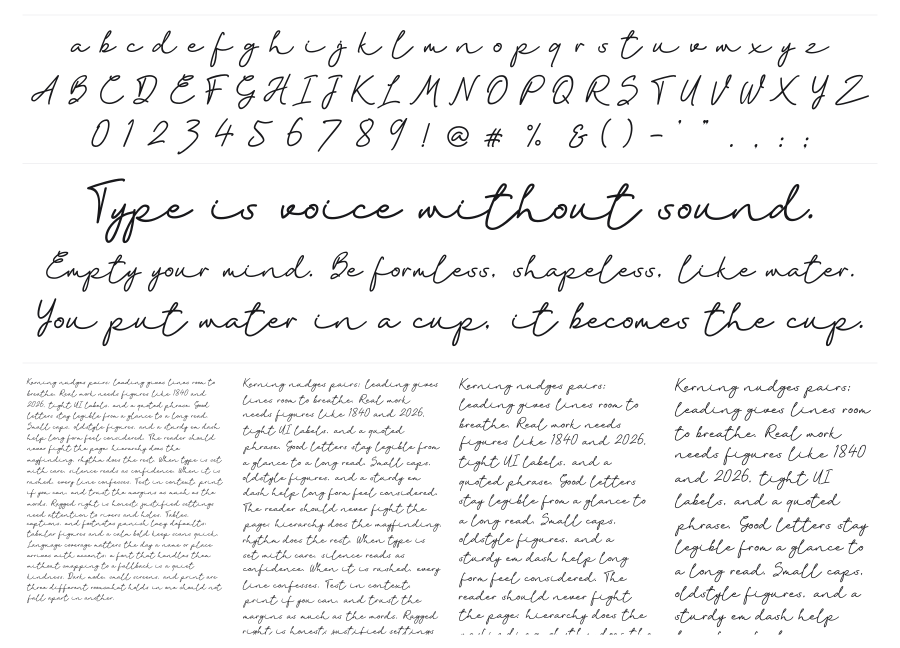 a b c d e f g h i j k l m n o p q r s t u v w x y z
A B C D E F G H I J K L M N O P Q R S T U V W X Y Z
0 1 2 3 4 5 6 7 8 9 ! @ # % & ( ) - ' " . , : ;
Type is voice without sound.
Empty your mind. Be formless, shapeless, like water.
You put water in a cup, it becomes the cup.
Kerning nudges pairs; leading gives lines room to
breathe. Real work needs figures like 1840 and
2026, tight UI labels, and a quoted phrase. Good
letters stay legible from a glance to a long read.
Small caps, oldstyle figures, and a sturdy em dash
help long form feel considered. The reader should
never fight the page; hierarchy does the
wayfinding, rhythm does the rest. When type is set
with care, silence reads as confidence. When it is
rushed, every line confesses. Test in context, print
if you can, and trust the margins as much as the
words. Ragged right is honest; justified settings
need attention to rivers and holes. Tables,
captions, and footnotes punish lazy defaults;
tabular figures and a calm bold keep scans quick.
Language coverage matters the day a name or place
arrives with accents; a font that handles them
without snapping to a fallback is a quiet
kindness. Dark mode, small screens, and print are
three different rooms; what holds in one should not
fall apart in another.
Kerning nudges pairs; leading gives
lines room to breathe. Real work
needs figures like 1840 and 2026,
tight UI labels, and a quoted
phrase. Good letters stay legible from
a glance to a long read. Small caps,
oldstyle figures, and a sturdy em
dash help long form feel considered.
The reader should never fight the
page; hierarchy does the wayfinding,
rhythm does the rest. When type is
set with care, silence reads as
confidence. When it is rushed, every
line confesses. Test in context,
print if you can, and trust the
margins as much as the words. Ragged
right is honest; justified settings
Kerning nudges pairs;
leading gives lines room to
breathe. Real work needs
figures like 1840 and 2026,
tight UI labels, and a
quoted phrase. Good letters
stay legible from a glance to
a long read. Small caps,
oldstyle figures, and a
sturdy em dash help long
form feel considered. The
reader should never fight
the page; hierarchy does the
Kerning nudges pairs;
leading gives lines room
to breathe. Real work
needs figures like 1840
and 2026, tight UI
labels, and a quoted
phrase. Good letters stay
legible from a glance to
a long read. Small caps,
oldstyle figures, and a
sturdy em dash help